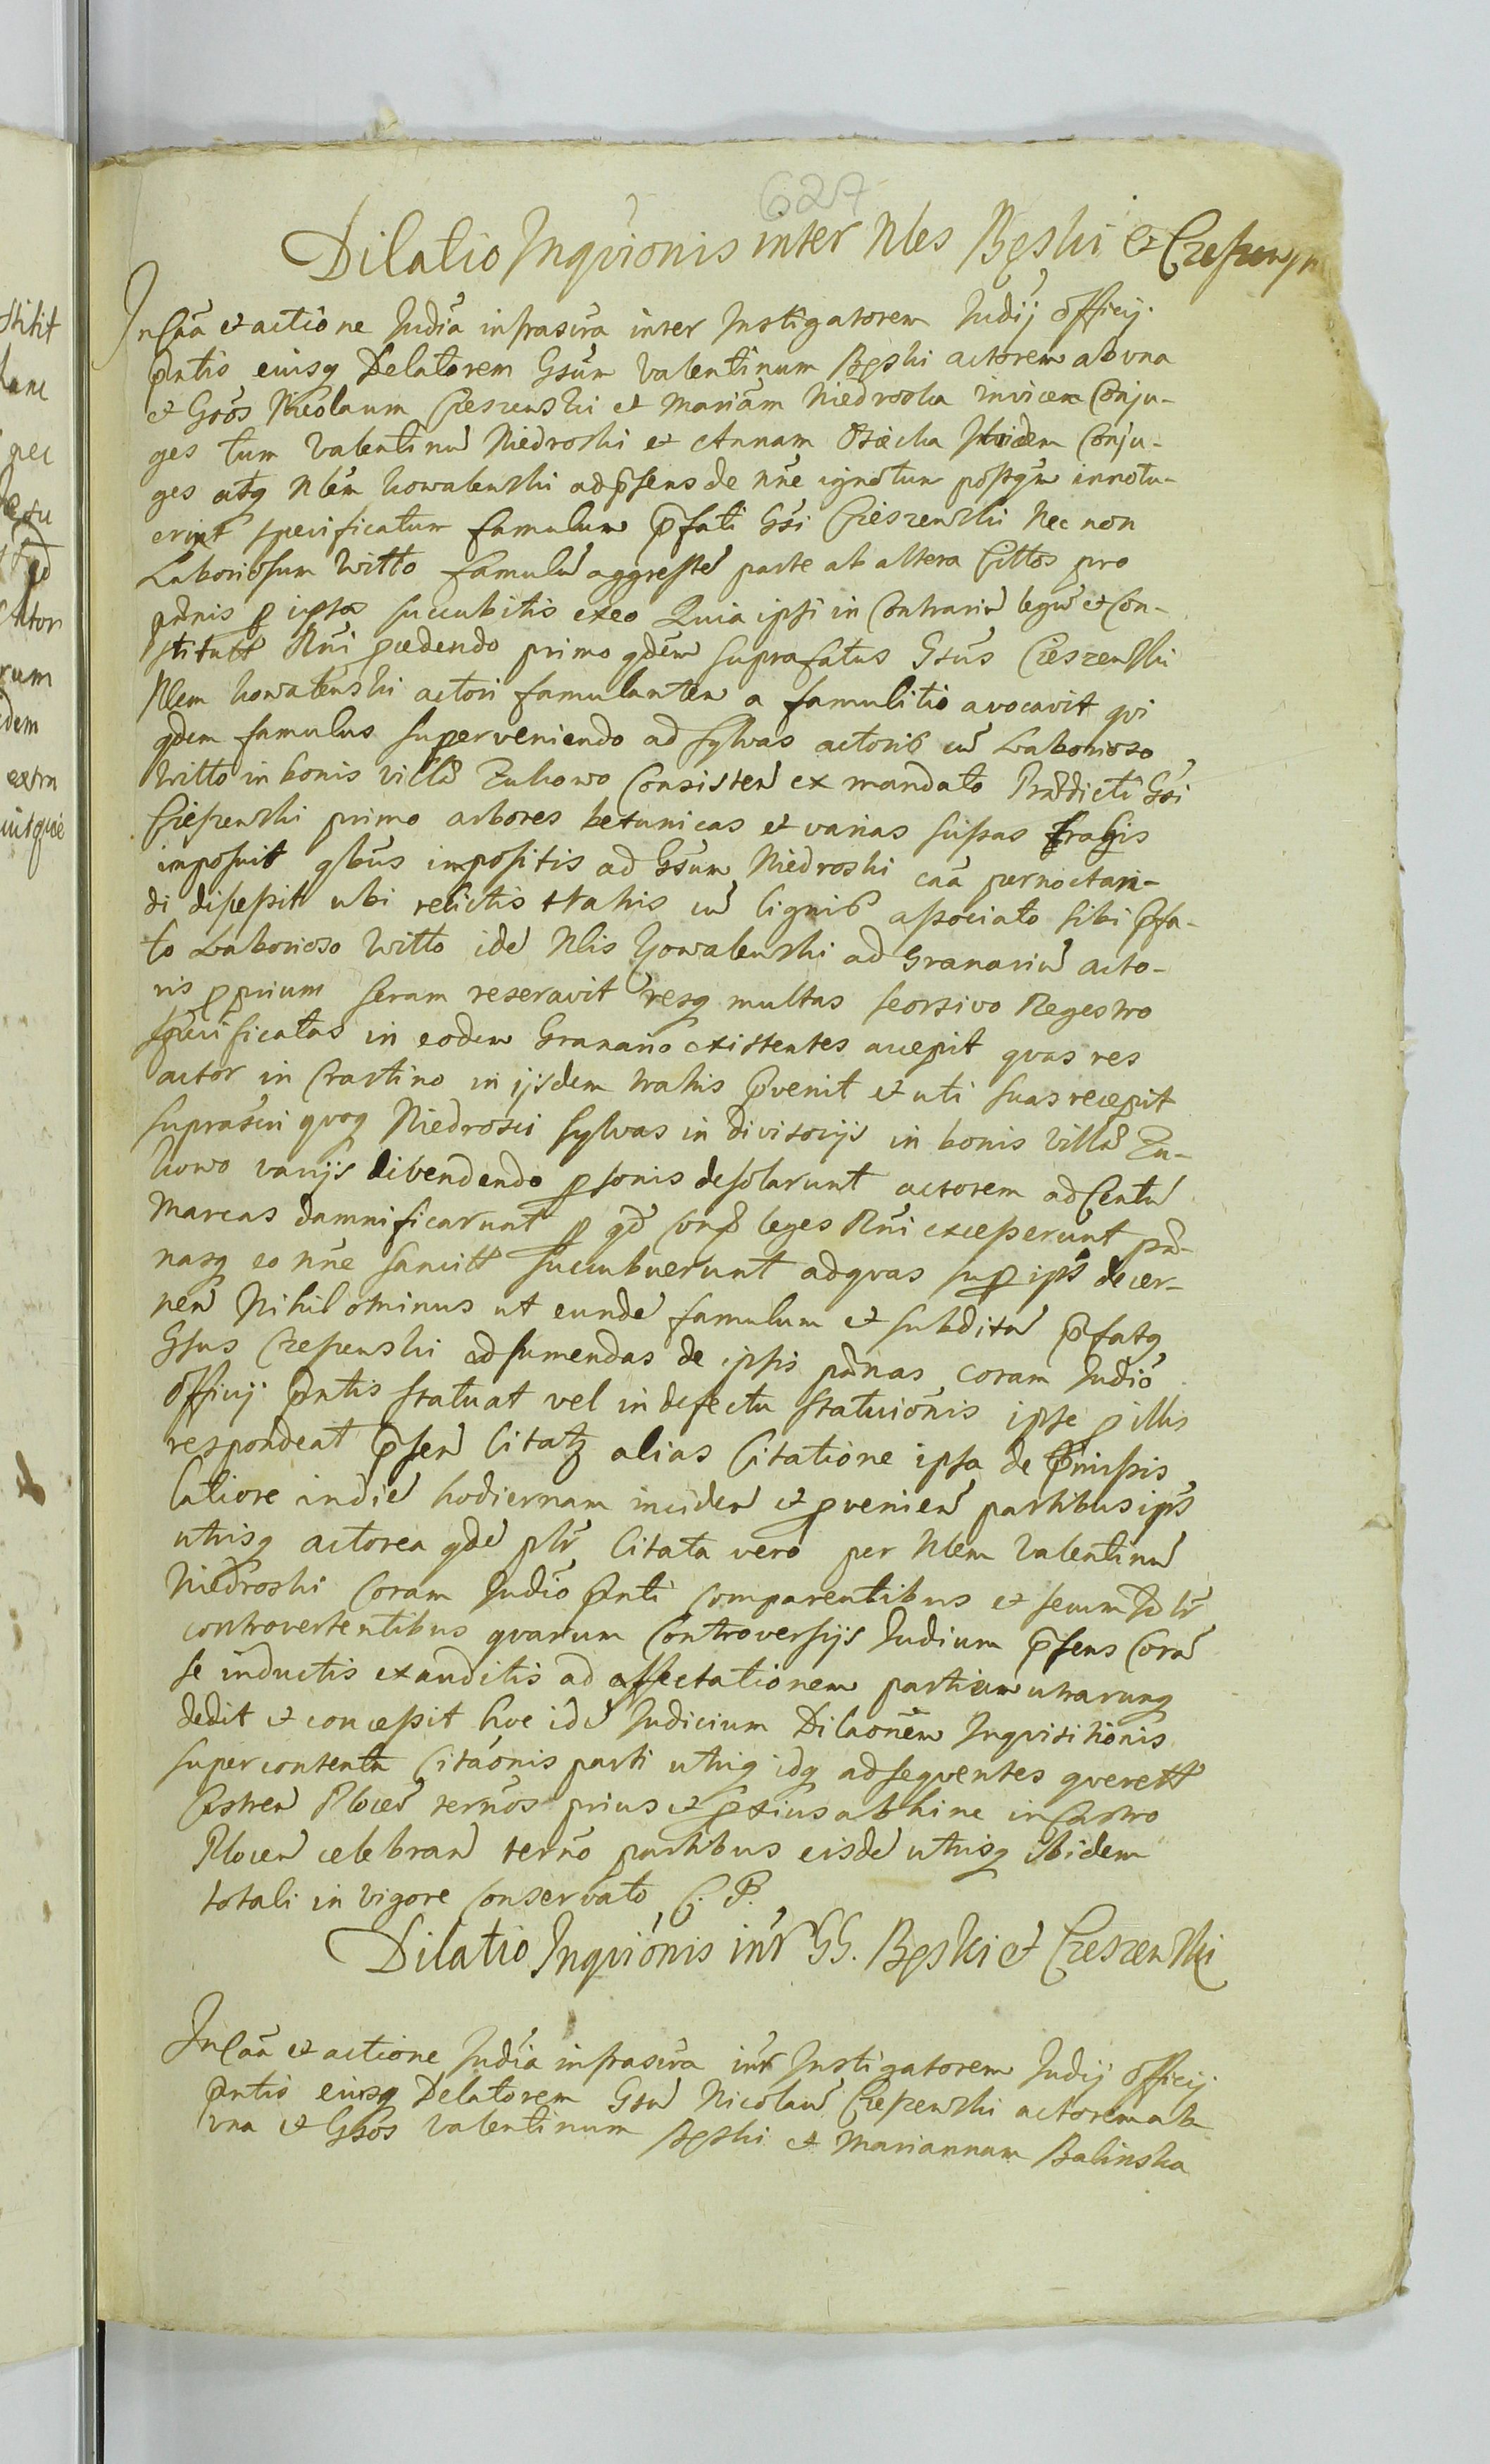 627
Dilatio Inqvionis inter Nles Bęski et
In Caa et actione Judia infrascra inter Instigatorem Judij officij
pntis eiusq Delatorem Gsum Valentinum Bęski actorem ab una
et Gsos Nicolaum Cieszenski et Mariam Niedroska invicem Conju-
ges tum Valentinu Niedroski et Annam Osiecka itidem Conju-
ges atq Nlem Kowalewski ad psens de nne ignotum postqm innotu-
erint specificatum famulum pfati Gsi Cieszenski Nec non
Laboriosum Witto famulu aggreste parte ab altera Cittos pro
pænis p ipsos succubitis exeo Quia ipsi in Contrariu legu et Con-
stitutt Rni pcedendo primo qdem suprafatus Gsus Cieszenski
Nlem Kowalenski actori famulantem a famulitio avocavit qvi
qdem famulus superveniendo ad sylvas actoris cu Laborioso
Witto in bonis villæ Zukowo Consisten ex mandato Prædicti Gsi
Cieszenski primo arbores betunicas et varias suppas trahis
imposuit qbus impositis ad Gsum Niedroski caa pernoctan-
di discessit ubi relictis trahis cu lignis associato sibi pfa-
to Laborioso Witto ide Nlis Kowalenski ad Granariu acto-
ris pprium seram reseravit resq multas seorsivo Regestro
specificatas in eodem Granario existentes accepit qvas res
actor in Crastino in ijsdem trahis pvenit et uti suas recepit
suprascri qvoq Niedrosci sylvas in divisorijs in bonis villæ Zu-
kowo varijs divendendo psonis desolarunt actorem ad Centu
Marcas damnificarunt p qd conp leges Rni excesserunt pæ-
nasq eo nne sancitt succubuerunt ad qvas sup ipis decer-
nen Nihilominus ut eunde famulum et subditu pfatq
Gsus Czeszenski ad sumendas de ipsis pænas coram Judio
officij pntis statuat vel in defectu statuionis ipse p illis
respondeat psen Citatq alias Citatione ipsa de pmissis
latiore in die hodiernam inciden et pvenien partibus ips
utrisq actorea qde plr Citata vero per Nlem Valentinu
Niedroski Coram Judio pnti comparentibus et secum
controvertentibus qvarum Controversijs Judium psens Cora
se inductis exauditis ad affectationem partium utrarumq
dedit et concessit hoc ide Judicium Dilaonem Inqvisitionis
super contenta Citaonis parti utriq idq ad seqventes qverett
Castren Plocen termos prius et pxius abhinc in Castro
Plocen celebran termo partibus eisde utrisq ibidem
totali in vigore conservato C. P.
Dilatio Inqvionis intr GG. Bęski et Czeszenski
In Caa et actione Judia infrascra intr Instigatorem Judij Officij
pntis eiusq Delatorem Gsu Nicolau Czeszenski actorem ab
una et Gsos Valentinum Bęski et Mariannam Balinska